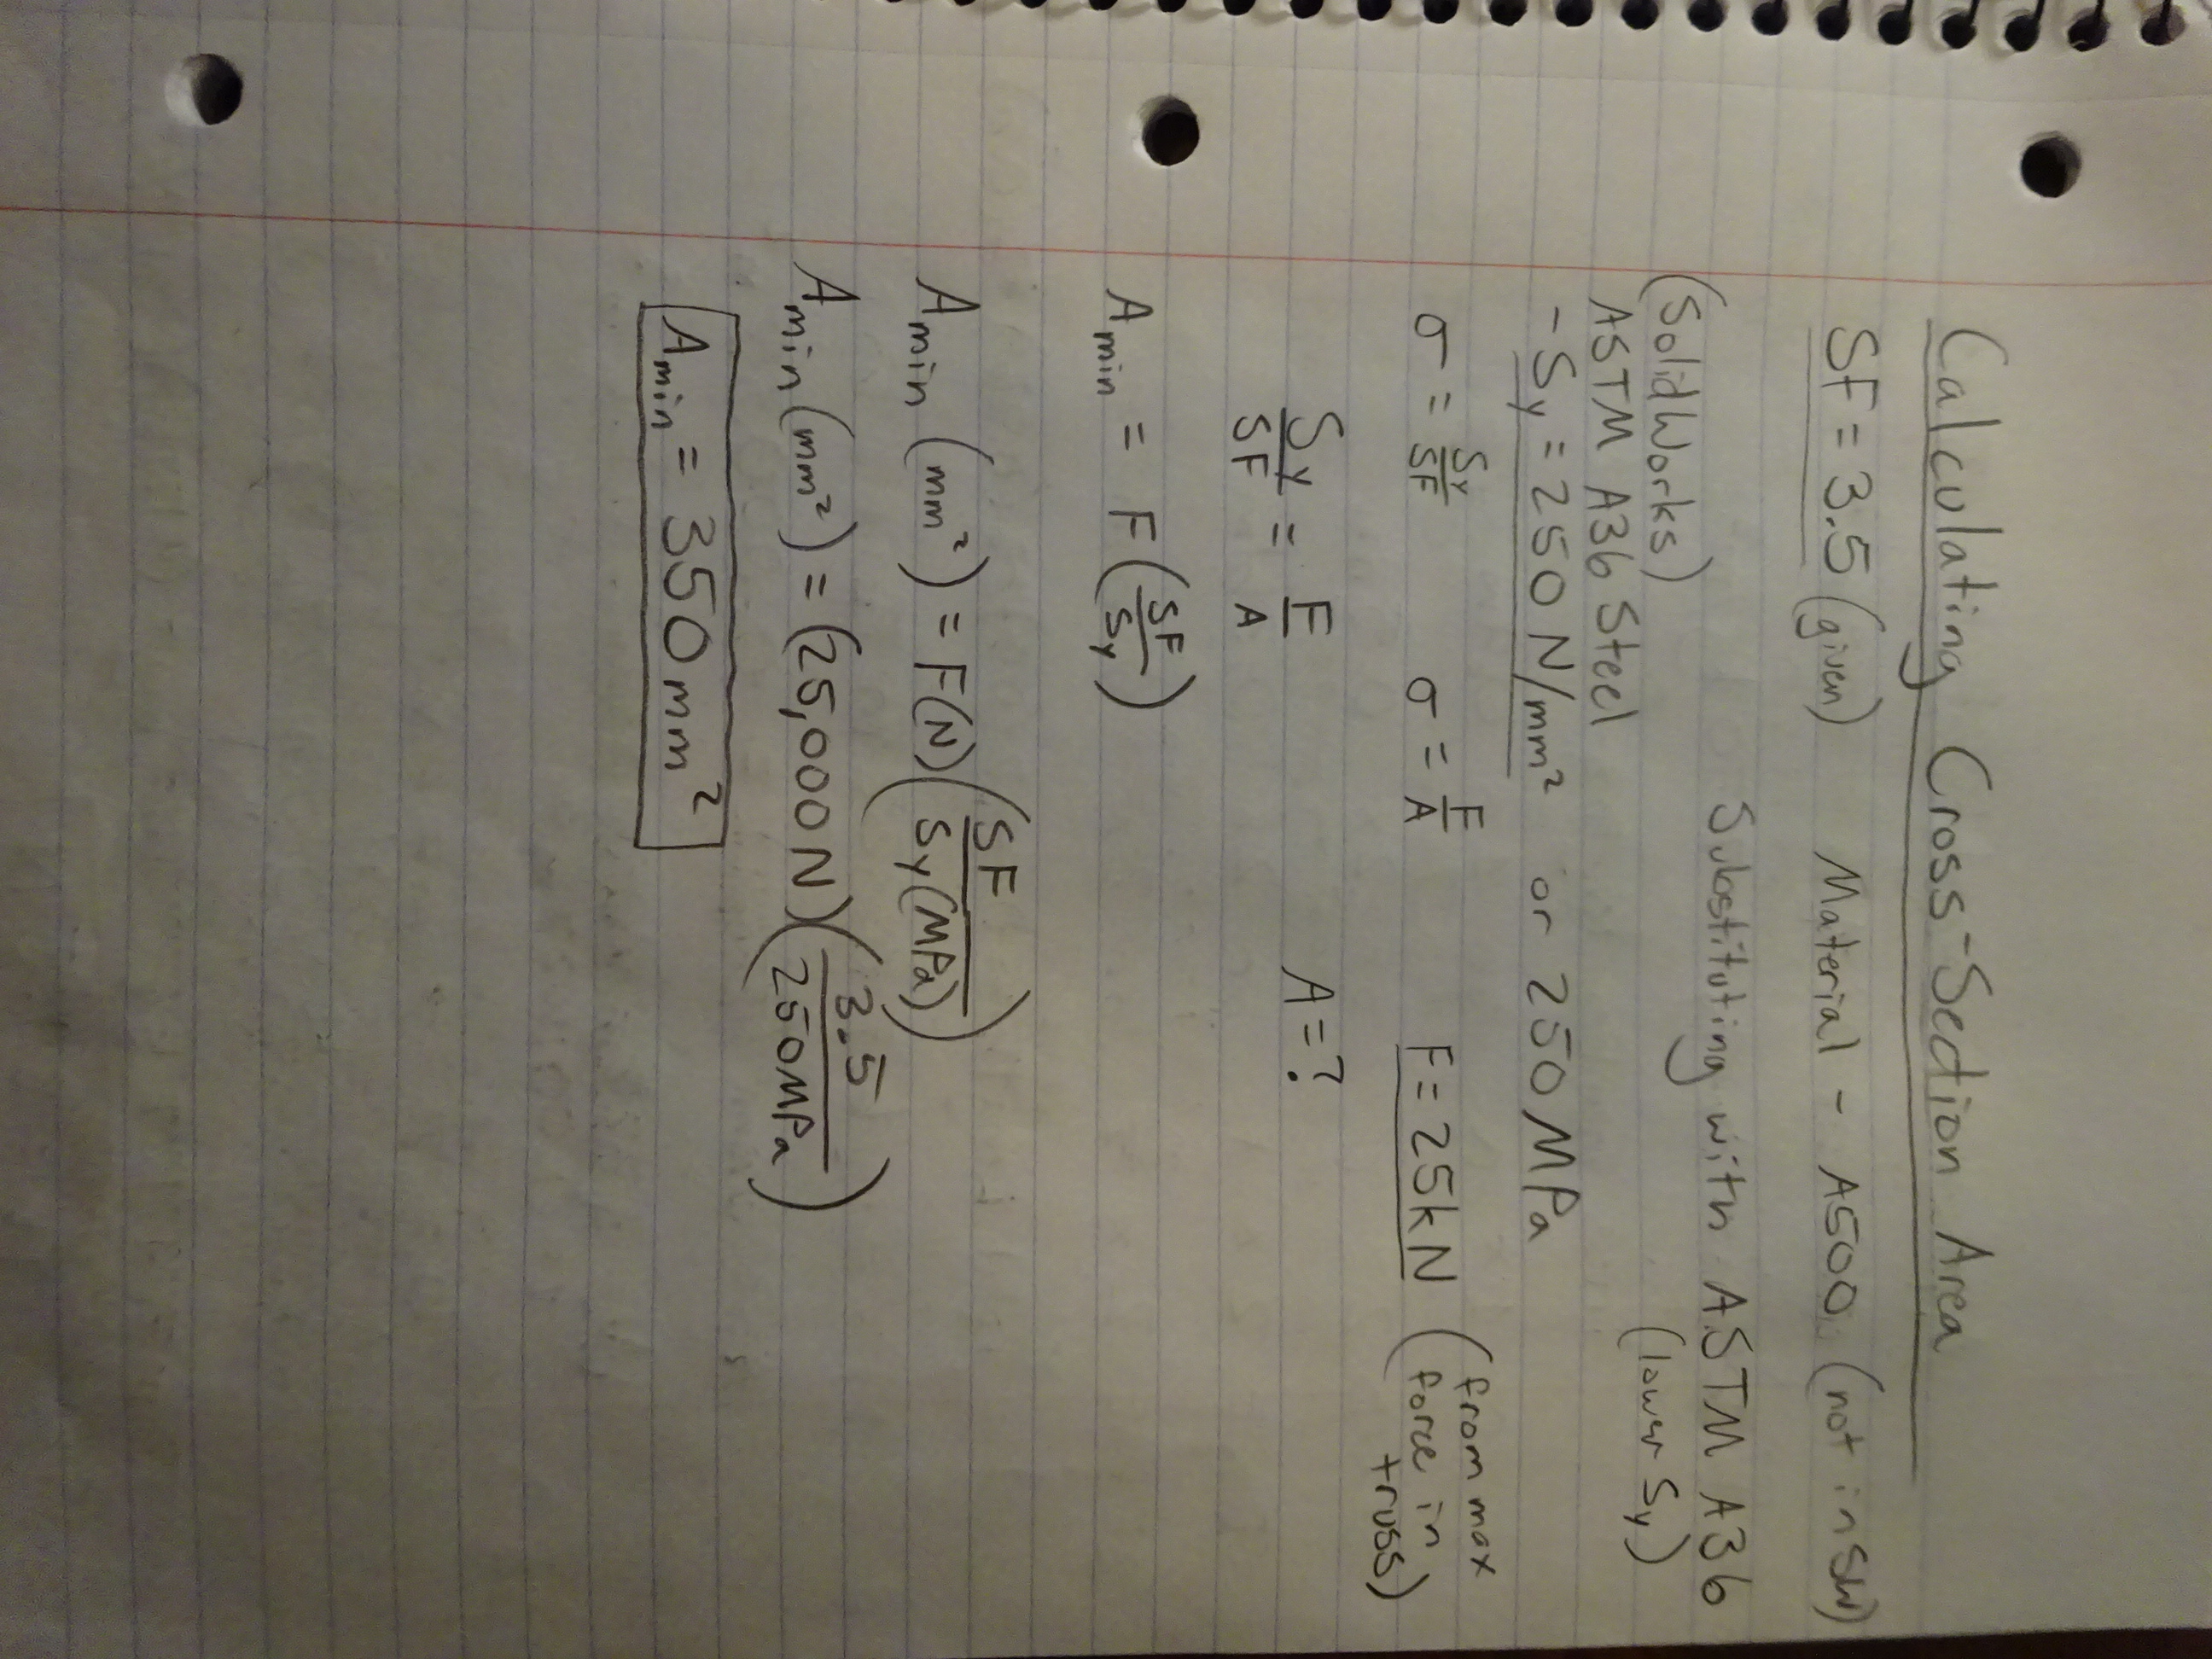 Calculating Cross-Section Area
SF = 3.5 (given) Material - A500 (not in SW)
Substituting with ASTM A36
(SolidWorks) (lower Sy)
ASTM A36 Steel
- Sy = 250 N/mm² or 250 MPa
σ = Sy/SF σ = F/A F = 25kN (from max force in truss)
Sy/SF = F/A A = ?
Amin = F(SF/Sy)
Amin (mm²) = F(N)(SF/Sy(MPa))
Amin (mm²) = (25,000N)(3.5/250MPa)
Amin = 350mm²